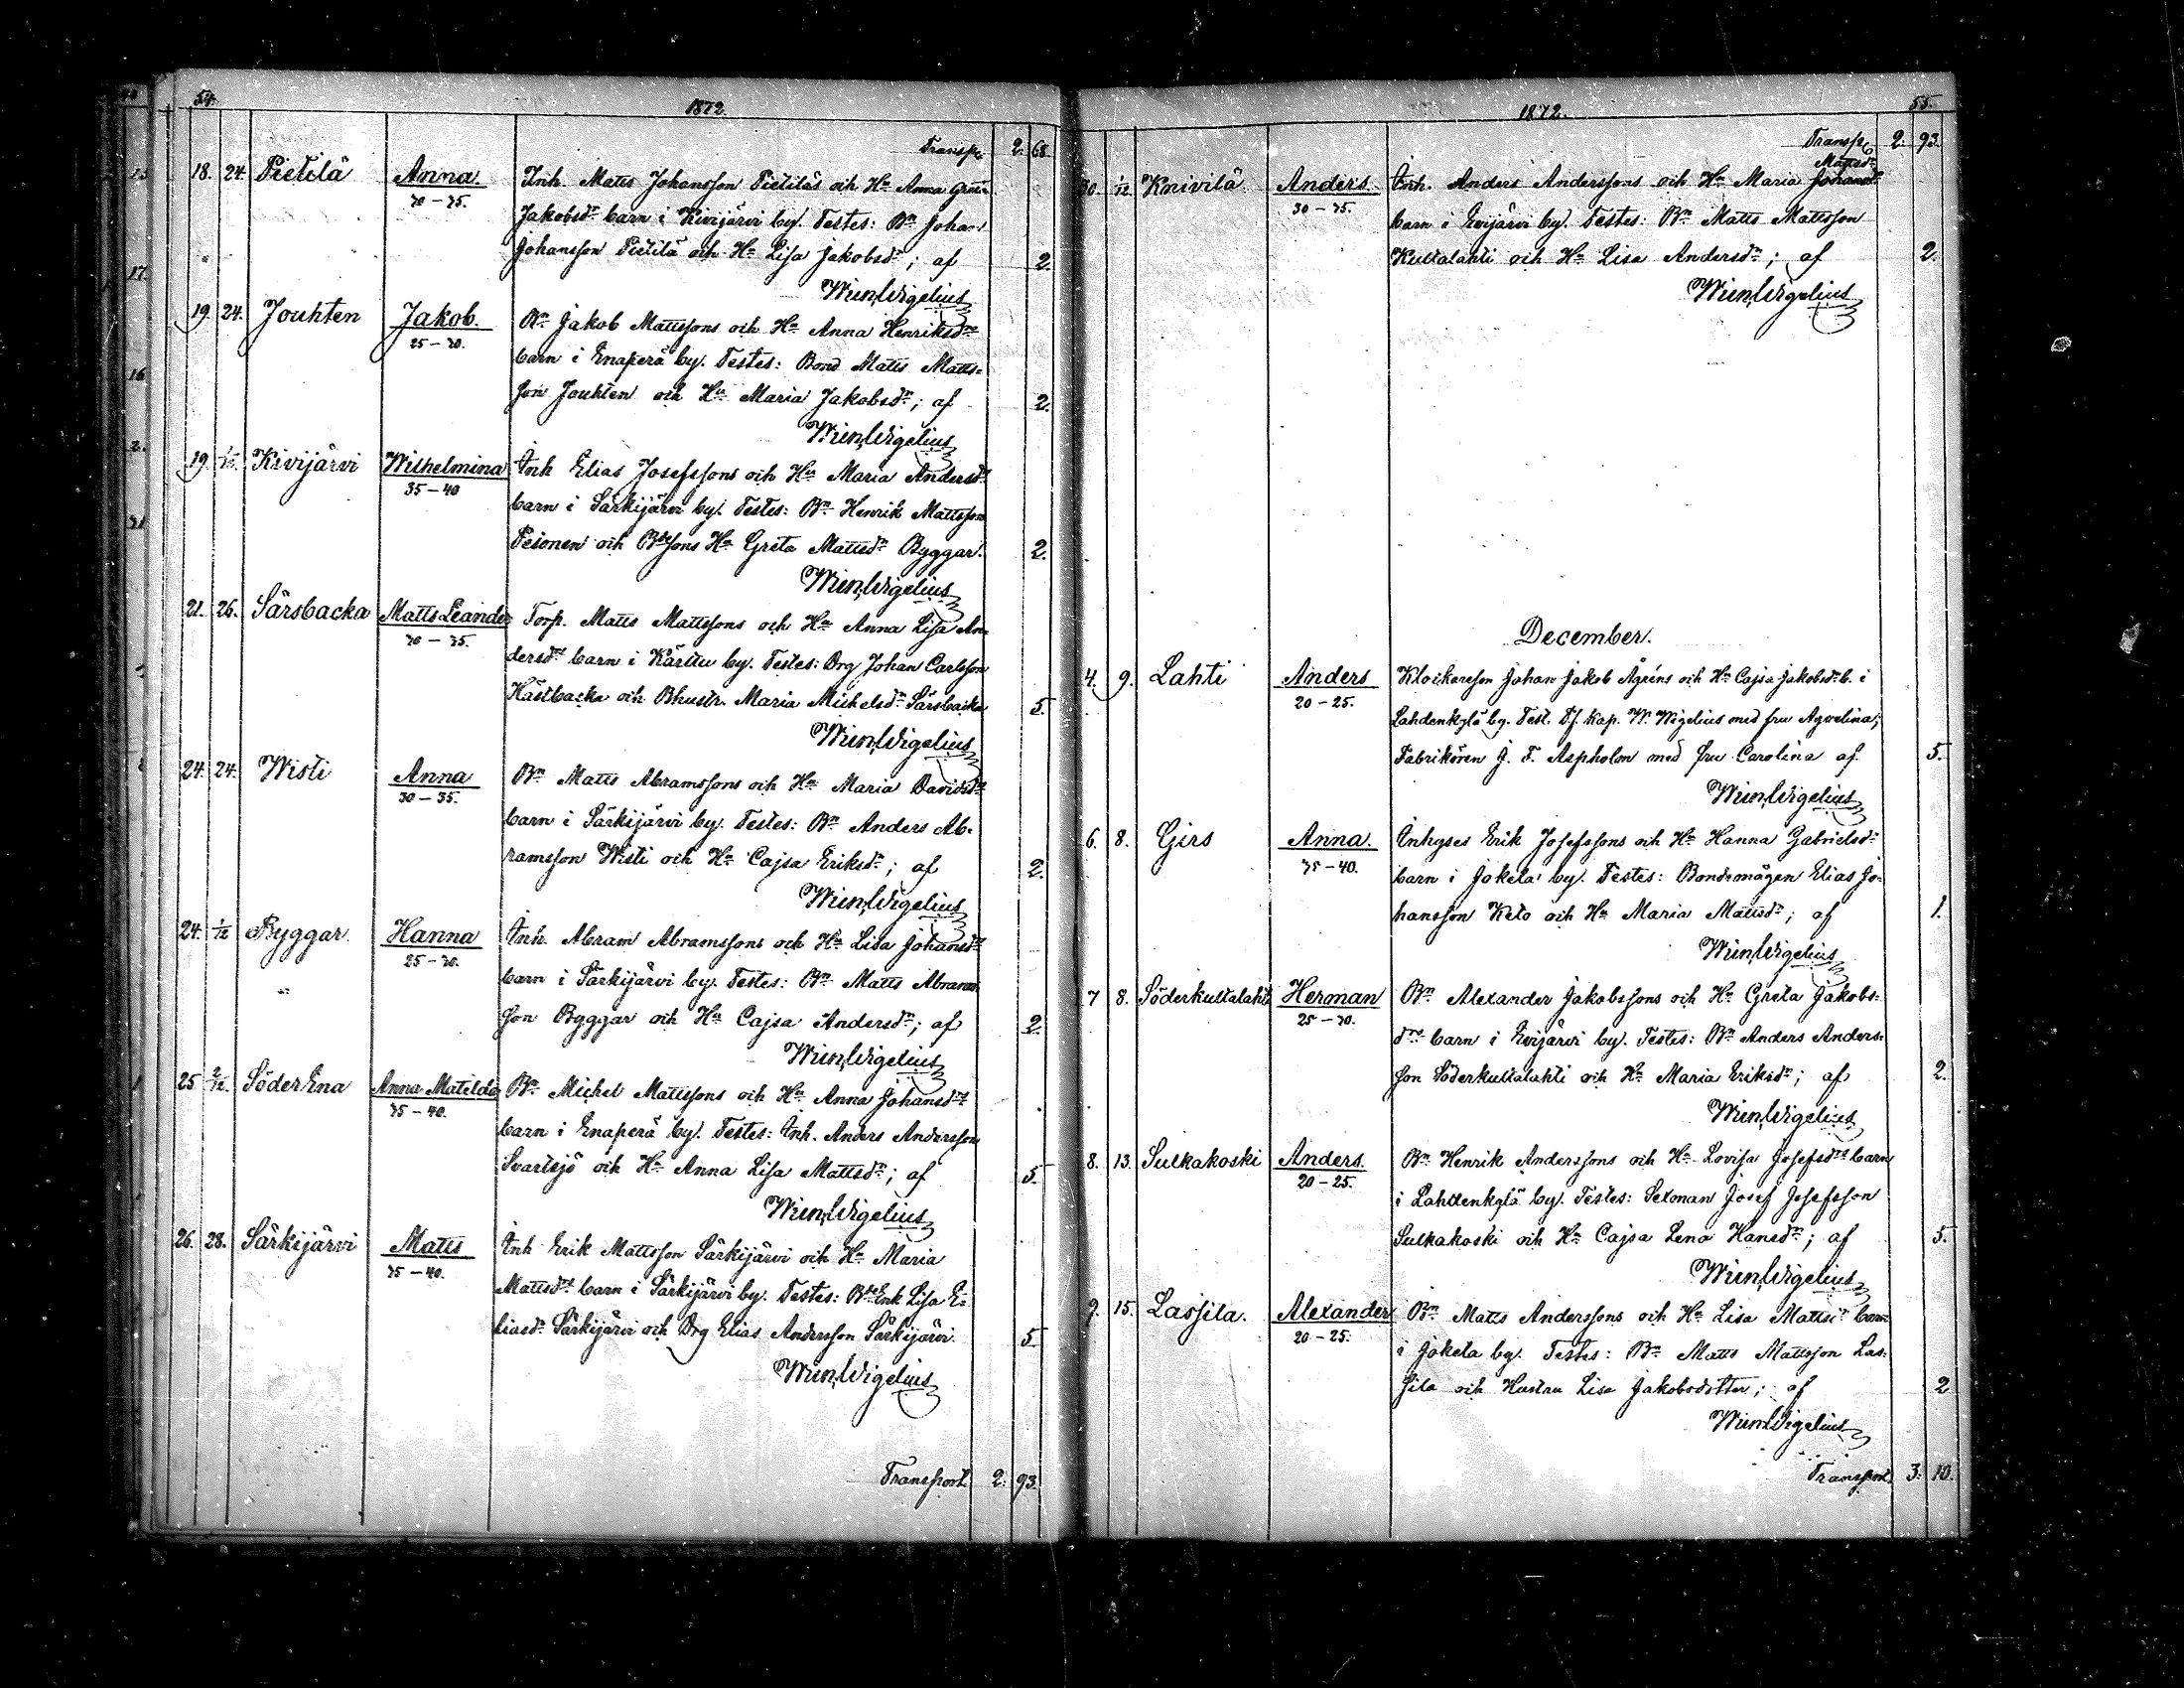 54.
1872.
Transp. 2. 68.
18. 24. Pietilä Anna. Inh. Matts Johansson Pietiläs och Hu Anna Greta
30 – 35. Jakobsdrs barn i Kivijärvi by. Testes: Bn Johan
Johansson Pietilä och Hu Lisa Jakobsdr; af 2.
Wm Wigelius
19. 24. Jouhten Jakob. Bn Jakob Mattssons och Hu Anna Henriksdrs
25 – 30. barn i Enaperä by. Testes: Bond Matts Matts-
son Jouhten och Hu Maria Jakobsdr; af 2.
Wm Wigelius
19. 1/12. Kivijärvi Wilhelmina Inh Elias Josefssons och Hu Maria Andersdrs
35 – 40 barn i Särkijärvi by. Testes: Bn Henrik Mattsson
Peionen och Bdesons Hu Greta Mattsdr Byggar. 2.
Wm Wigelius
21. 26. Särsbacka Matts Leander Torp. Matts Mattssons och Hu Anna Lisa An-
30 – 35. dersdrs barn i Kärttu by. Testes: Drg Johan Carlsson
Hästbacka och Bhustr. Maria Michelsdr Särsbacka 5.
Wm Wigelius
24. 24. Wisti Anna Bn Matts Abramssons och Hu Maria Davidsdrs
30 – 35. barn i Särkijärvi by. Testes: Bn Anders Ab-
ramsson Wisti och Hu Cajsa Eriksdr; af 2.
Wm Wigelius
24. 1/12 Byggar. Hanna Inh. Abram Abramssons och Hu Lisa Johansdrs
25 – 30. barn i Särkijärvi by. Testes: Bn Matts Abrams-
son Byggar och Hu Cajsa Andersdr; af 2.
Wm Wigelius
25 2/12. Söder Ena Anna Matilda Bn Michel Mattssons och Hu Anna Johansdrs
35 – 40. barn i Enaperä by. Testes: Inh. Anders Andersson
Svartsjö och Hu Anna Lisa Mattsdr; af 5.
Wm Wigelius
26. 28. Särkijärvi Matts Inh Erik Mattsson Särkijärvi och Hu Maria
35 – 40. Mattsdrs barn i Särkijärvi by. Testes: Bde Enk Lisa E-
liasdr Särkijärvi och Drg Elias Andersson Särkijärvi. 5.
Wm Wigelius
Transport. 2. 93.
55.
1872.
Transp. 2. 93.
Mattsdrs
30. 1/12 Knivilä. Anders. Inh. Anders Anderssons och Hu Maria Johansdrs
30 – 35. barn i Evijärvi by. Testes: Bn Matts Mattsson
Kultalahti och Hu Lisa Andersdr; af 2.
Wm Wigelius
December.
4. 9. Lahti Anders Klockaresson Johan Jakob Ågréns och Hu Cajsa Jakobsdr b. i
20 – 25. Lahdenkylä by. Test. Tf. Kap. W. Wigelius med fru Agvelina;
Fabrikören J. F. Aspholm med fru Carolina af 5.
Wm Wigelius
6. 8. Girs Anna. Inhyses Erik Josefssons och Hu Hanna Gabrielsdrs
35 – 40. barn i Jokela by. Testes: Bondemågen Elias Jo-
hansson Keto och Hu Maria Mattsdr; af 1.
Wm Wigelius
7 8. Söderkultalahti Herman Bn Alexander Jakobssons och Hu Greta Jakobs-
25 – 30. drs barn i Evijärvi by. Testes: Bn Anders Anders-
son Söderkultalahti och Hu Maria Eriksdr; af 2.
Wm Wigelius
8. 13. Sulkakoski Anders. Bn Henrik Anderssons och Hu Lovisa Josefsdrs barn
20 – 25. i Lahdenkylä by. Testes: Sexman Josef Josefsson
Sulkakoski och Hu Cajsa Lena Hansdr; af 5.
Wm Wigelius
9. 15. Lassila. Alexander Bn Matts Anderssons och Hu Lisa Mattsdrs barn
20 – 25. i Jokela by. Testes: Bn Matts Mattsson Las-
sila och Hustru Lisa Jakobsdotter; af 2
Wm Wigelius
Transport. 3. 10.